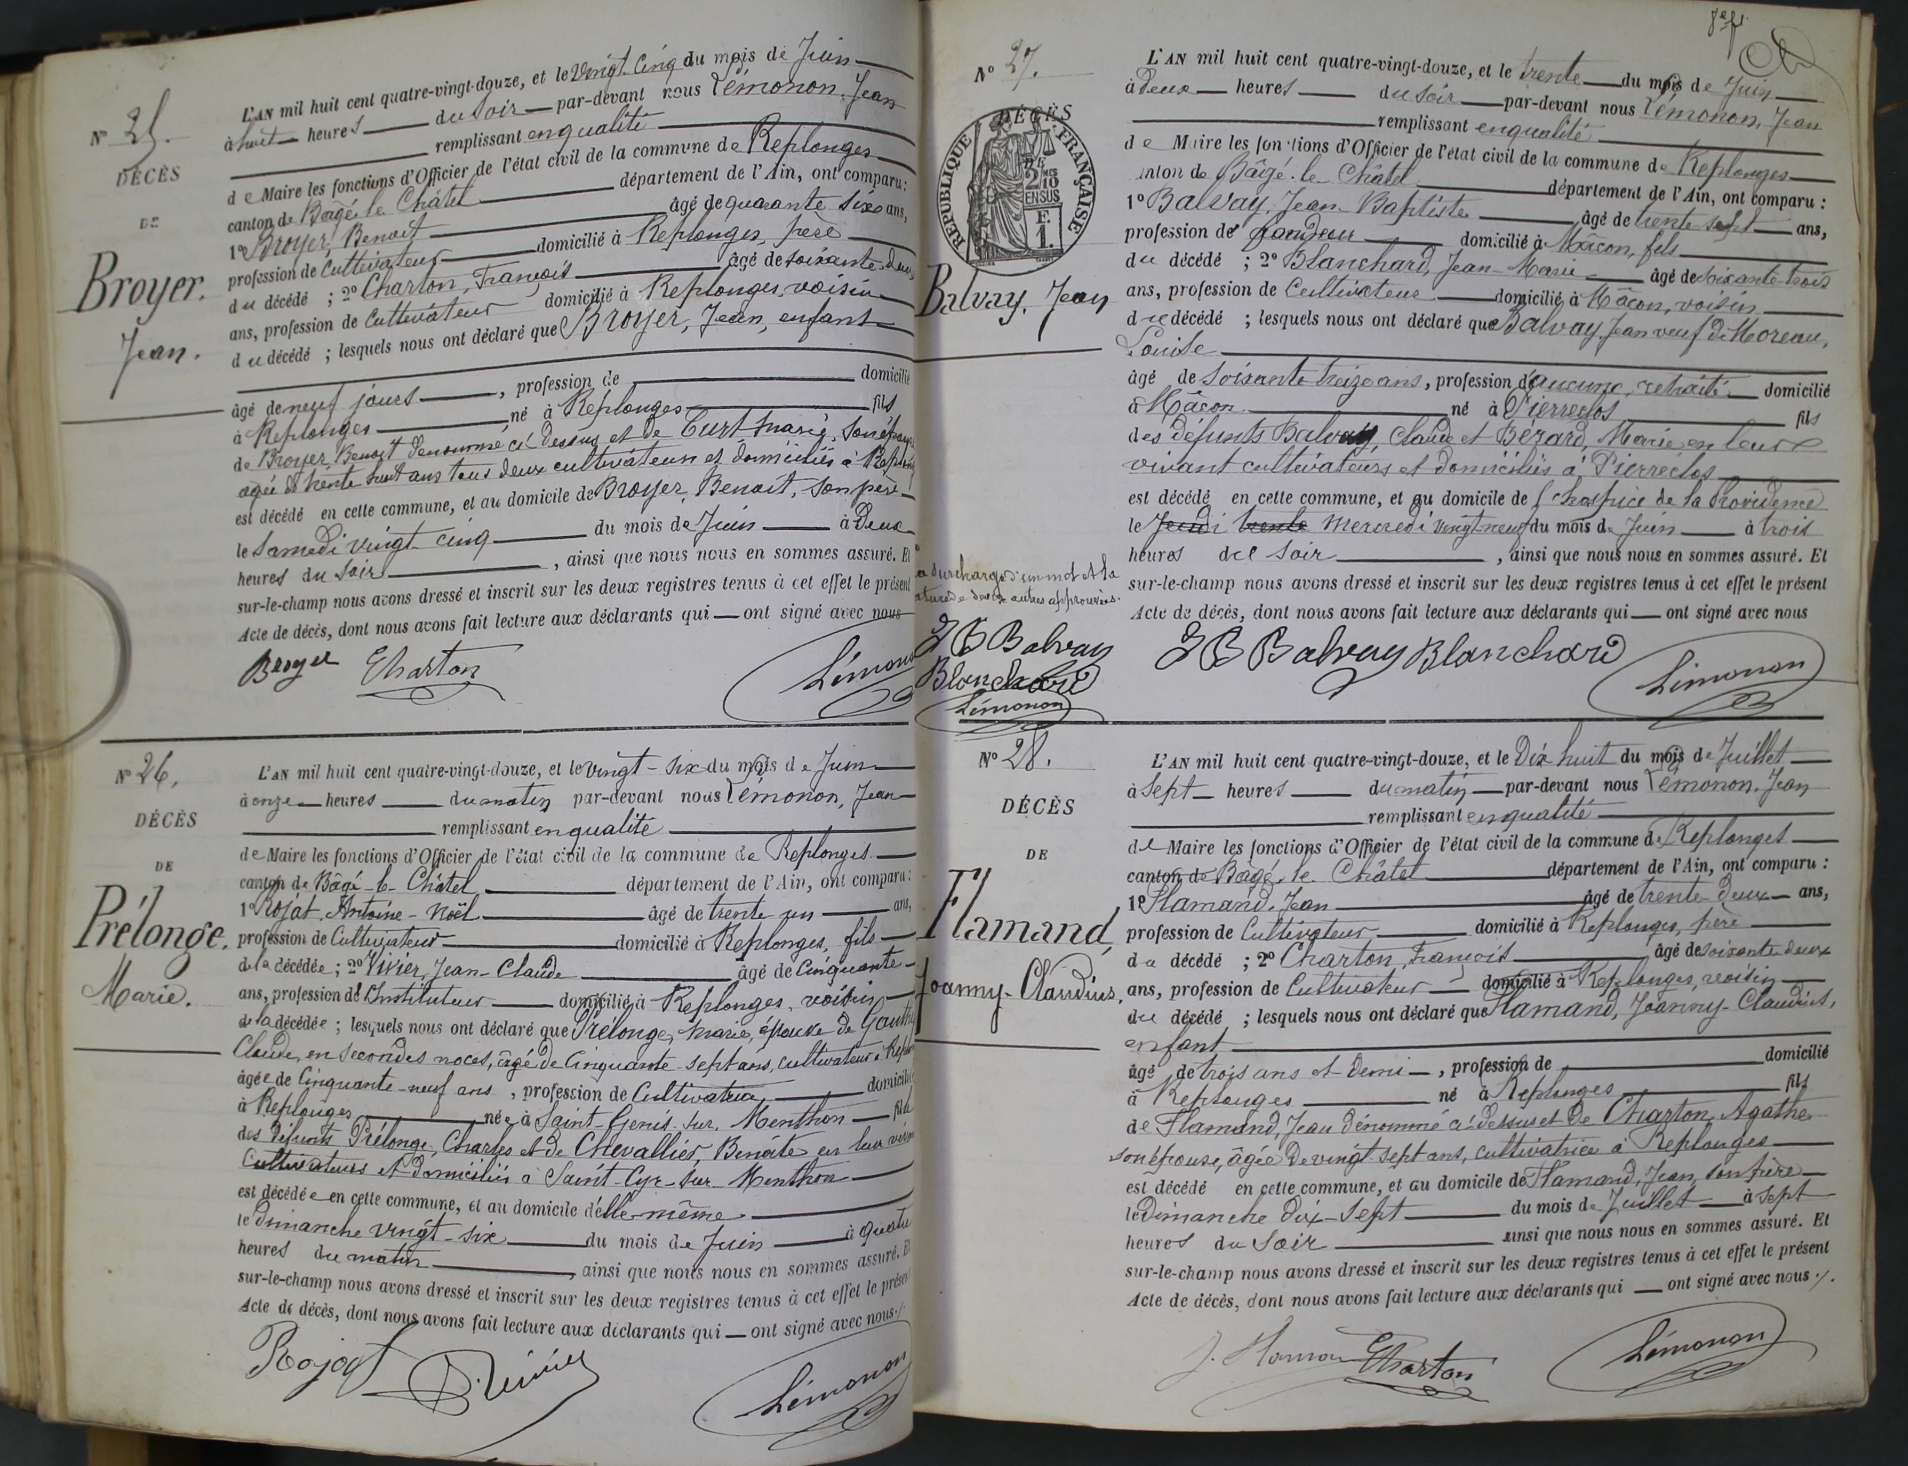 N° 25.
DÉCÈS
DE
Broyer.
Jean.
L'AN mil huit cent quatre-vingt-douze, et le vingt-cinq du mois de Juin
à huit heures du soir par-devant nous Lémonon, Jean
remplissant en qualité
de Maire les fonctions d'Officier de l'état civil de la commune de Replonges
canton de Bâgé-le-Châtel département de l'Ain, ont comparu :
1° Broyer, Benoit âgé de quarante six ans,
profession de Cultivateur domicilié à Replonges, père
du décédé ; 2° Charton, François âgé de soixante-deux
ans, profession de Cultivateur domicilié à Replonges, voisin
du décédé ; lesquels nous ont déclaré que Broyer, Jean, enfant
âgé de neuf jours , profession de domicilié
à Replonges né à Replonges fils
de Broyer, Benoit dénommé ci-dessus et de Curt Marie, son épouse
agée de trente huit ans tous deux cultivateurs et domiciliés à
est décédé en cette commune, et au domicile de Broyer, Benoit, son père
le Samedi vingt-cinq du mois de Juin à deux
heures du soir , ainsi que nous nous en sommes assuré. Et
sur-le-champ nous avons dressé et inscrit sur les deux registres tenus à cet effet le présent
Acte de décès, dont nous avons fait lecture aux déclarants qui ont signé avec nous
Broyer Charton
N° 26.
DÉCÈS
DE
Prélonge.
Marie.
L'AN mil huit cent quatre-vingt-douze, et le vingt-six du mois de Juin
à onze heures du matin par-devant nous Lémonon, Jean
remplissant en qualité
de Maire les fonctions d'Officier de l'état civil de la commune de Replonges
canton de Bâgé-le-Châtel département de l'Ain, ont comparu :
1° Rojat, Antoine-Noël âgé de trente un ans,
profession de Cultivateur domicilié à Replonges, fils
de la décédée ; 2° Vivier, Jean-Claude âgé de cinquante
ans, profession d'Instituteur domicilié à Replonges, voisin
de la décédée ; lesquels nous ont déclaré que Prélonge, Marie, épouse de
Claude, en secondes noces, âgé de cinquante-sept ans, cultivateur à
âgée de cinquante-neuf ans , profession de Cultivatrice domiciliée
à Replonges née à Saint-Genis-sur-Menthon fille
des défunts Prélonge, Charles et de Chevallier Benoite en leur
Cultivateurs et domiciliés à Saint-Cyr-sur-Menthon
est décédée en cette commune, et au domicile d'elle même
le Dimanche vingt-six du mois de Juin à quatre
heures du matin , ainsi que nous nous en sommes assuré. Et
sur-le-champ nous avons dressé et inscrit sur les deux registres tenus à cet effet le présent
Acte de décès, dont nous avons fait lecture aux déclarants qui ont signé avec nous ./.
Rojat Lémonon
N° 27.
RÉPUBLIQUE FRANÇAISE
2/10 EN SUS
F. 1.
DÉCÈS
Balvay, Jean
L'AN mil huit cent quatre-vingt-douze, et le trente du mois de Juin
à deux heures du soir par-devant nous Lémonon, Jean
remplissant en qualité
de Maire les fonctions d'Officier de l'état civil de la commune de Replonges
canton de Bâgé-le-Châtel département de l'Ain, ont comparu :
1° Balvay, Jean-Baptiste âgé de trente sept ans,
profession de domicilié à Mâcon, fils
du décédé ; 2° Blanchard, Jean-Marie âgé de soixante-trois
ans, profession de Cultivateur domicilié à Mâcon, voisin
du décédé ; lesquels nous ont déclaré que Balvay, Jean veuf de Moreau,
Louise
âgé de soixante treize ans, profession d'aucune, retraité domicilié
à Mâcon né à Pierreclos fils
des défunts Balvay, Claude et Bérard, Marie en leur
vivant cultivateurs et domiciliés à Pierreclos
est décédé en cette commune, et au domicile de l'hospice de la Providence
le Jeudi trente Mercredi vingt neuf du mois de Juin à trois
heures du soir , ainsi que nous nous en sommes assuré. Et
sur-le-champ nous avons dressé et inscrit sur les deux registres tenus à cet effet le présent
Acte de décès, dont nous avons fait lecture aux déclarants qui ont signé avec nous
surcharge d'un mot et la
de deux autres approuvées.
J B Balvay
Blanchard
Lémonon
J B Balvay Blanchard Lémonon
N° 28.
DÉCÈS
DE
Flamand,
Joanny-Claudius,
L'AN mil huit cent quatre-vingt-douze, et le Dix huit du mois de Juillet
à sept heures du matin par-devant nous Lémonon, Jean
remplissant en qualité
de Maire les fonctions d'Officier de l'état civil de la commune de Replonges
canton de Bâgé-le-Châtel département de l'Ain, ont comparu :
1° Flamand, Jean âgé de trente-deux ans,
profession de Cultivateur domicilié à Replonges, père
du décédé ; 2° Charton, François âgé de soixante deux
ans, profession de Cultivateur domicilié à Replonges, voisin
du décédé ; lesquels nous ont déclaré que Flamand, Joanny-Claudius,
enfant
âgé de trois ans et demi , profession de domicilié
à Replonges né à Replonges fils
de Flamand, Jean dénommé ci-dessus et de Charton, Agathe
son épouse, âgée de vingt sept ans, cultivatrice à Replonges
est décédé en cette commune, et au domicile de Flamand, Jean, son père
le Dimanche dix-sept du mois de Juillet à sept
heures du soir ainsi que nous nous en sommes assuré. Et
sur-le-champ nous avons dressé et inscrit sur les deux registres tenus à cet effet le présent
Acte de décès, dont nous avons fait lecture aux déclarants qui ont signé avec nous ./.
Charton Lémonon